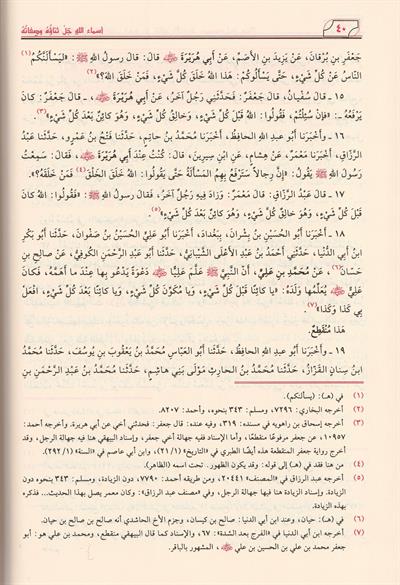 ٤٠
أسماء الله جل ثناؤه وصفاته
جَعْفَرِ بنِ بُرْقَانَ، عَنْ يَزِيدَ بنِ الأصَمِّ، عَنْ أبي هُرَيْرَةَ ﷺ قَالَ: قالَ رسولُ اللهِ ﷺ: «لَيَسْأَلَنَّكُمُ(١)
النَّاسُ عَنْ كُلِّ شَيْءٍ، حَتَّى يَسْأَلُوكُمْ: هَذَا اللهُ خَلَقَ كُلَّ شَيْءٍ، فَمَنْ خَلَقَ اللهَ؟»(٢).
١٥ - قَالَ سُفْيَانُ: قَالَ جَعْفَرٌ: فَحَدَّثَنِي رَجُلٌ آخَرُ، عَنْ أبي هُرَيْرَةَ ﷺ، قالَ جَعْفَرٌ: كانَ
يَرْفَعُهُ ـ: «فَإنْ سُئِلْتُمْ، فَقُولُوا: اللهُ قَبْلَ كُلِّ شَيْءٍ، وَخَالِقُ كُلِّ شَيْءٍ، وَهُوَ كَائِنٌ بَعْدَ كُلِّ شَيْءٍ»(٣).
١٦ - وأخْبَرَنَا أبُو عبدِ اللهِ الحَافِظُ، أخْبَرَنَا مُحَمَّدُ بنُ حاتِمٍ، حَدَّثَنَا فَتْحُ بنُ عَمْرٍو، حَدَّثَنَا عَبْدُ
الرَّزَّاقِ، أخْبَرَنَا مَعْمَرٌ، عَنْ هِشَامٍ، عَنِ ابْنِ سِيرِينَ، قَالَ: كُنْتُ عِنْدَ أبي هُرَيْرَةَ ﷺ، فَقَالَ: سَمِعْتُ
رَسُولَ اللهِ ﷺ يَقُولُ: «إنَّ رِجَالاً سَتَرْفَعُ بِهِمُ المَسْأَلَةُ حَتَّى يَقُولُوا: اللهُ خَلَقَ الخَلْقَ(٤) فَمَنْ خَلَقَهُ؟».
١٧ - قَالَ عَبْدُ الرَّزَّاقِ: قَالَ مَعْمَرٌ: وَزَادَ فِيهِ رَجُلٌ آخَرُ، فَقَالَ رسولُ اللهِ ﷺ: «فَقُولُوا: اللهُ كَانَ
قَبْلَ كُلِّ شَيْءٍ، وَهُوَ خَالِقُ كُلِّ شَيْءٍ، وَهُوَ كَائِنٌ بَعْدَ كُلِّ شَيْءٍ»(٥).
١٨ - أخْبَرَنَا أبُو الحُسَيْنِ بنُ بِشْرَانَ، بِبَغْدَادَ، أخْبَرَنَا أبُو عَلِيٍّ الحُسَيْنُ بْنُ صَفْوَانَ، حَدَّثَنَا أبُو بَكْرِ
ابنُ أبي الدُّنْيَا، حَدَّثَنِي أحْمَدُ بنُ عبدِ الأعْلَى الشَّيْبَانِيُّ، حَدَّثَنَا أبُو عبدِ الرَّحْمَنِ الكُوفِيُّ، عَنْ صَالِحِ بنِ
حَسَّانَ(٦)، عَنْ مُحَمَّدِ بنِ عَلِيٍّ، أنَّ النَّبِيَّ ﷺ عَلَّمَ عَلِيًّا ﷺ دَعْوَةً يَدْعُو بِهَا عِنْدَ مَا أهَمَّهُ، فَكَانَ
عَلِيٌّ ﷺ يُعَلِّمُهَا وَلَدَهُ: «يَا كَائِنًا قَبْلَ كُلِّ شَيْءٍ، وَيَا مُكَوِّنَ كُلِّ شَيْءٍ، وَيَا كائِنًا بَعْدَ كُلِّ شَيْءٍ، افْعَلْ
بِي كَذَا وَكَذَا»(٧).
هَذَا مُنْقَطِعٌ.
١٩ - وأخْبَرَنَا أبُو عبدِ اللهِ الحَافِظُ، حَدَّثَنَا أبُو العَبَّاسِ مُحَمَّدُ بْنُ يَعْقُوبَ بنِ يُوسُفَ، حَدَّثَنَا مُحَمَّدُ
ابنُ سِنَانٍ القَزَّازُ، حَدَّثَنَا مُحَمَّدُ بنُ الحارِثِ مَوْلَى بَنِي هَاشِمٍ، حَدَّثَنَا مُحَمَّدُ بنُ عبدِ الرَّحْمَنِ بنِ
(١) في (هـ): (يسألنكم).
(٢) أخرجه البخاري: ٧٢٩٦، ومسلم: ٣٤٣ بنحوه، وأحمد: ٨٢٠٧.
(٣) أخرجه إسحاق بن راهويه في مسنده: ٣١٩، وفيه عنده: قال جعفر: فحدثني أخي عن أبي هريرة، وأخرجه أحمد:
١٠٩٥٧، عن جعفر مرفوعًا منقطعًا، وأما الإسناد ففيه جهالة أخي جعفر، وإسناد البيهقي هنا فيه جهالة الرجل، وقد
أخرج رواية جعفر المنقطعة هذه أيضًا الطبري في «التاريخ» (٢١/١)، وابن أبي عاصم في «السنة» (٢٩٢/١).
(٤) من هنا فقد في (هـ) إلى قوله: وقد يكون الظهور.. تحت اسمه (الظاهر).
(٥) أخرجه عبد الرزاق في «المصنف» ٢٠٤٤١، ومن طريقه أحمد: ٧٧٩٠، دون الزيادة، ومسلم: ٣٤٣ بنحوه دون
الزيادة. وإسناد الزيادة هنا فيها جهالة الرجل، وفي «مصنف عبد الرزاق»: وكان معمر يصل بهذا الحديث... فذكره
بهذه الزيادة.
(٦) في (هـ): حيان، وعند ابن أبي الدنيا: صالح بن كيسان، وجزم الأخ الحاشدي أنه صالح بن صالح بن حيان.
(٧) أخرجه ابن أبي الدنيا في «الفرج بعد الشدة»: ٦٧، والإسناد كما قال البيهقي منقطع، ومحمد بن علي هو: أبو
جعفر محمد بن علي بن الحسين بن علي ﷺ، المشهور بالباقر.